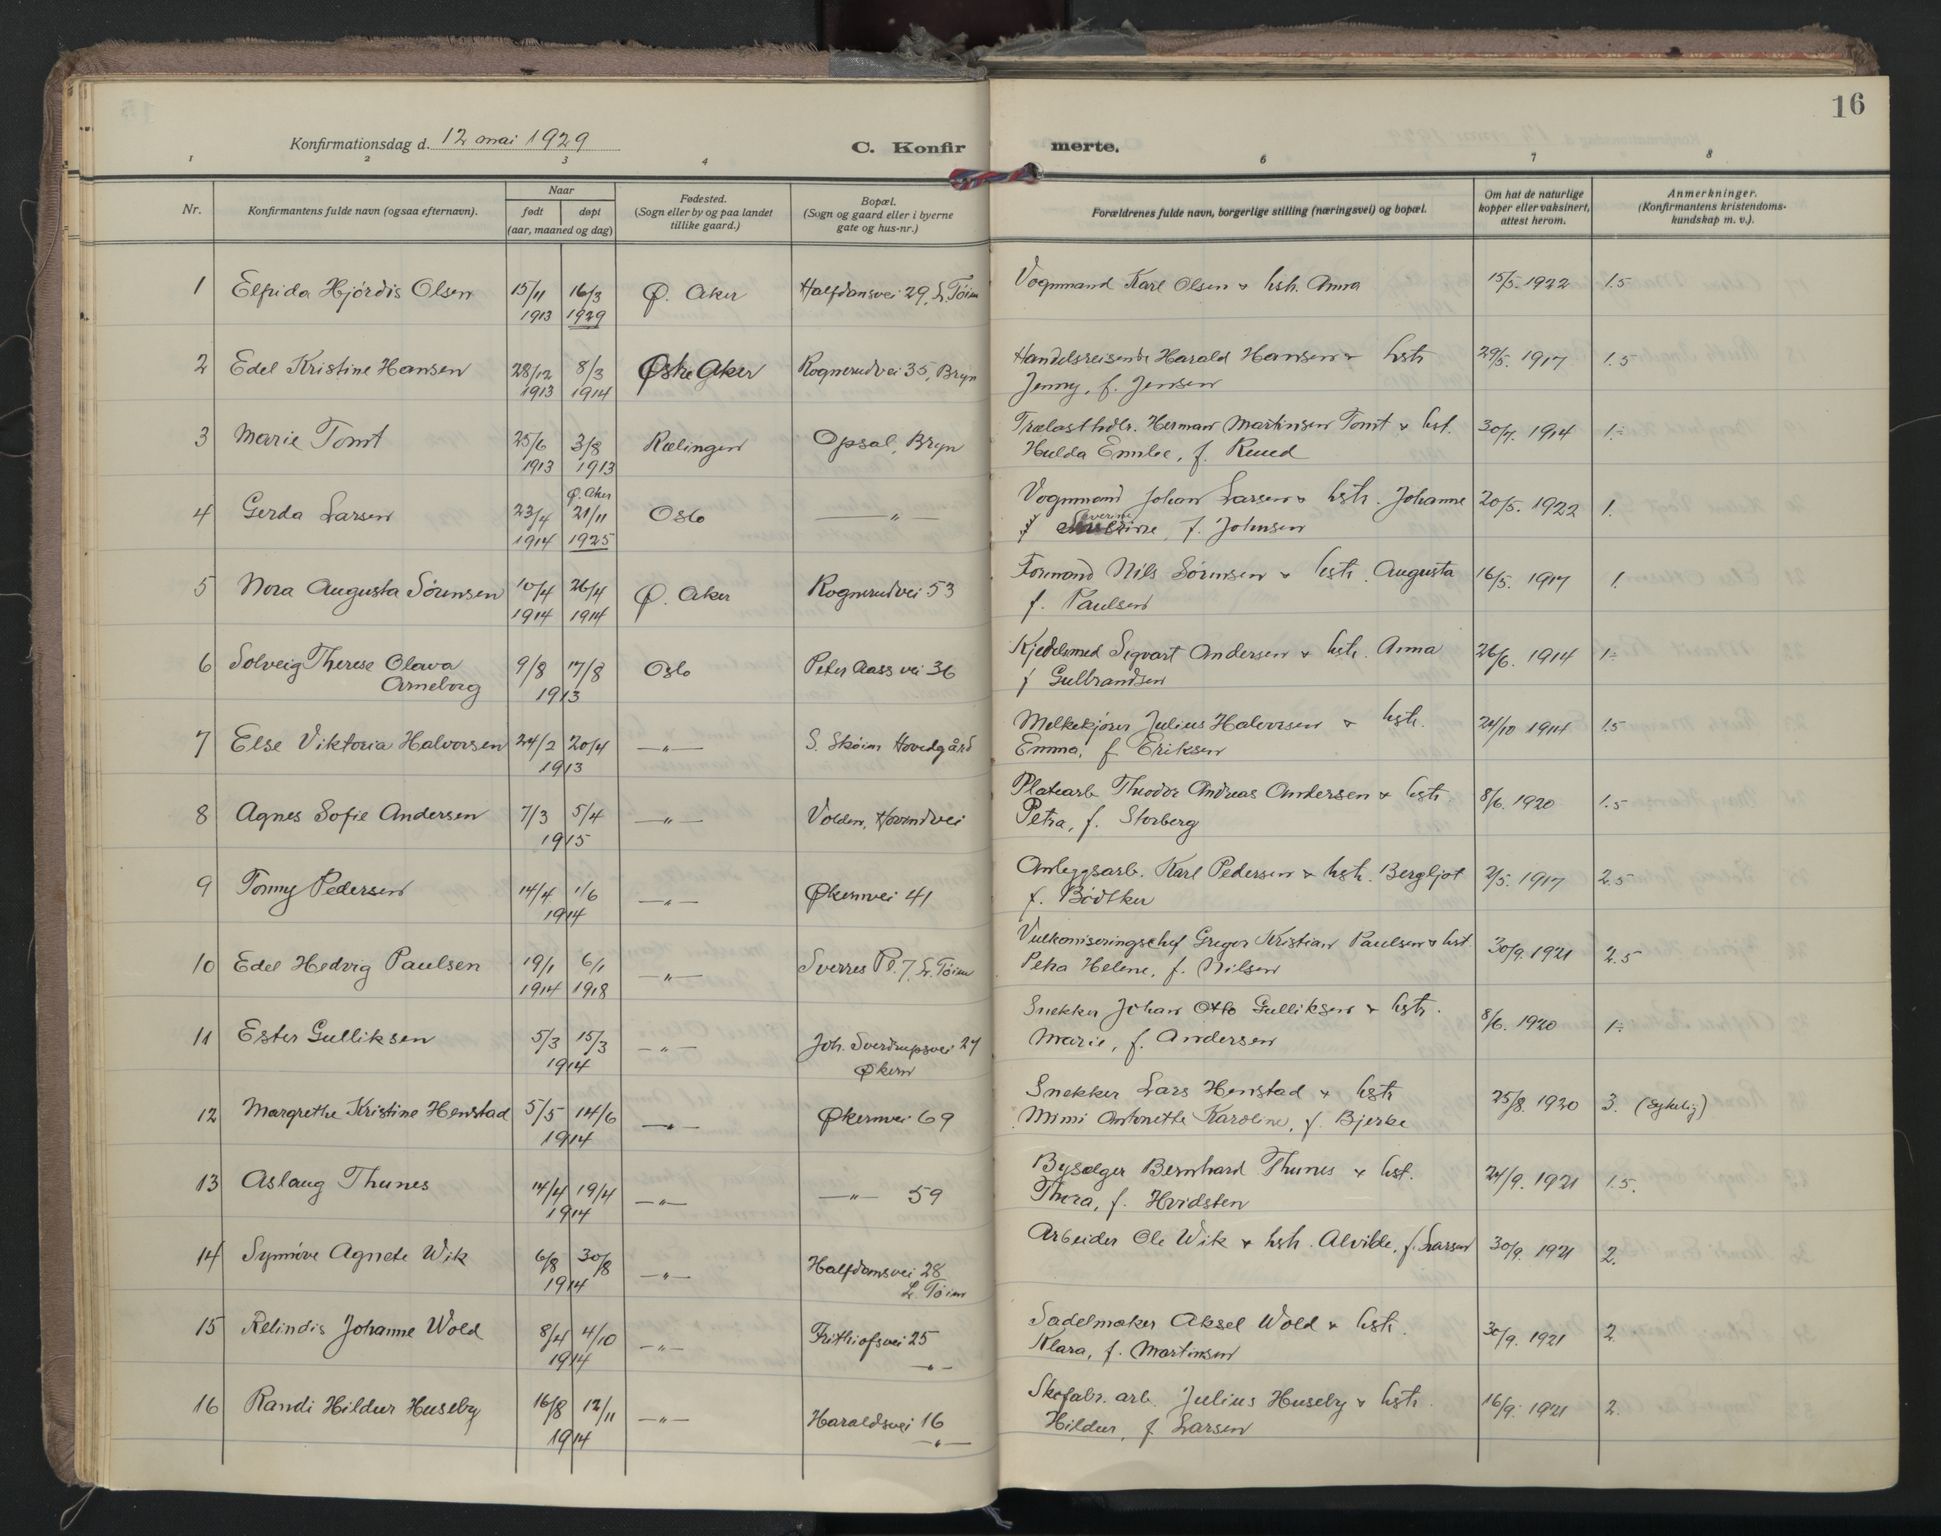 16
Konfirmationsdag d. 12 mai 1929
C. Konfir merte.
1 2 3 4 6 7 8
Nr.
Konfirmantens fulde navn (ogsaa efternavn).
Naar
født døpt
(aar, maaned og dag)
Fødested.
(Sogn eller by og paa landet
tillike gaard.)
Bopæl.
(Sogn og gaard eller i byerne
gate og hus-nr.)
Forældrenes fulde navn, borgerlige stilling (næringsvei) og bopæl.
Om hat de naturlige
kopper eller vaksinert,
attest herom.
Anmerkninger.
(Konfirmantens kristendoms-
kundskap m. v.).
1 Elfrida Hjördis Olsen 15/11 16/3 Ø. Aker Halfdansvei 29, L. Töien Vognmand Karl Olsen & hstr. Anna 15/5. 1922 1.5
1913 1929
2 Edel Kristine Hansen 28/12 8/3 Østre Aker Rognerudvei 35, Bryn Handelsreisende Harald Hansen & hstr 29/5. 1917 1.5
1913 1914 Jenny, f. Jensen
3 Marie Tomt 25/6 3/8 Rælingen Opsal, Bryn Trælasthdlr. Herman Martinsen Tomt & hst. 30/7. 1914 1.÷
1913 1913 Hulda Emilie, f. Ruud
Ø. Aker
4 Gerda Larsen 23/4 21/11 Oslo —"— Vognmand Johan Larsen & hstr. Johanne 20/5. 1922 1.
1914 1925 Severine, f. Johnsen
5 Nora Augusta Sörensen 10/4 26/4 Ø. Aker Rognerudvei 53 Formand Nils Sörensen & hstr. Augusta 16/5. 1917 1.
1914 1914 f. Paulsen
6 Solveig Therese Olava 9/8 17/8 Oslo Peter Aass vei 36 Kjedelsmed Sigvart Andersen & hstr. Anna 26/6. 1914 1÷
Arneborg 1913 f Gulbrandsen
7 Else Viktoria Halvorsen 24/2 20/4 —"— S. Skøien Hovedgård Melkekjører Julius Halvorsen & hstr. 24/10 1914 1.5
1913 Emma, f Eriksen
8 Agnes Sofie Andersen 7/3 5/4 —"— Volden, Hovindvei Platearb Theodor Andreas Andersen & hstr. 8/6. 1920 1.5
1915 Petra, f. Storberg
9 Tonny Pedersen 14/4 1/6 —"— Økernvei 41 Anleggsarb. Karl Pedersen & hstr. Bergljot 2/5. 1917 2.5
1914 f. Bödtker
10 Edel Hedvig Paulsen 19/1 6/1 —"— Sverres Pl. 7, L. Töien Vulkaniseringschef Gregor Kristian Paulsen & hst. 30/9. 1921 2.5
1914 1918 Petra Helene, f. Nilsen
11 Ester Gulliksen 5/3 15/3 —"— Joh. Sverdrupsvei 27 Snekker Johan Otto Gulliksen & hstr. 8/6. 1920 1÷
1914 Økern Marie, f. Andersen
12 Margrethe Kristine Henstad 5/5 14/6 —"— Økernvei 69 Snekker Lars Henstad & hstr 25/8. 1920 3. (sykelig)
1914 Mimi Antonette Karoline, f. Bjerke
13 Aslaug Thunes 14/4 19/4 —"— —"— 59 Bysælger Bernhard Thunes & hst. 24/9. 1921 1.5.
1914 Thora, f. Hvidsten
14 Synnöve Agnete Wik 6/8 30/8 —"— Halfdansvei 28 Arbeider Ole Wik & hstr. Alvilde, f. Larsen 30/9. 1921 2.
1914 L. Töien
15 Relindis Johanne Wold 8/4 4/10 —"— Frithiofsvei 25 Sadelmaker Aksel Wold & hstr. 30/9. 1921 2
1914 —"— Klara, f. Martinsen
16 Randi Hildur Huseby 16/8 12/11 —"— Haraldsvei 16 Skofabr. arb. Julius Huseby & hstr. 16/9. 1921 2.
1914 —"— Hildur, f Larsen